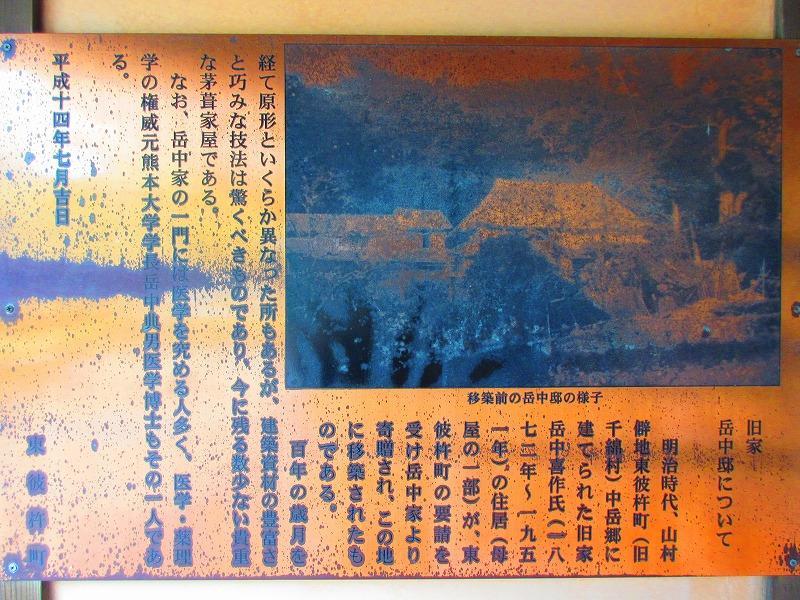 旧家
岳中邸について
明治時代、山村
僻地東彼杵町(旧
千綿村)中岳郷に
建てられた旧家
岳中喜作氏(一八
七二年〜一九五
一年)の住居(母
屋の一部)が、東
彼杵町の要請を
受け岳中家より
寄贈され、この地
に移築されたも
のである。
百年の歳月を
経て原形といくらか異なった所もあるが、建築資材の豊富さ
と巧みな技法は驚くべきものであり、今に残る数少ない貴重
な茅葺家屋である。
なお、岳中家の一門には医学を究める人多く、医学・薬理
学の権威元熊本大学学長岳中典男医学博士もその一人であ
る。
平成十四年七月吉日
東彼杵町
移築前の岳中邸の様子